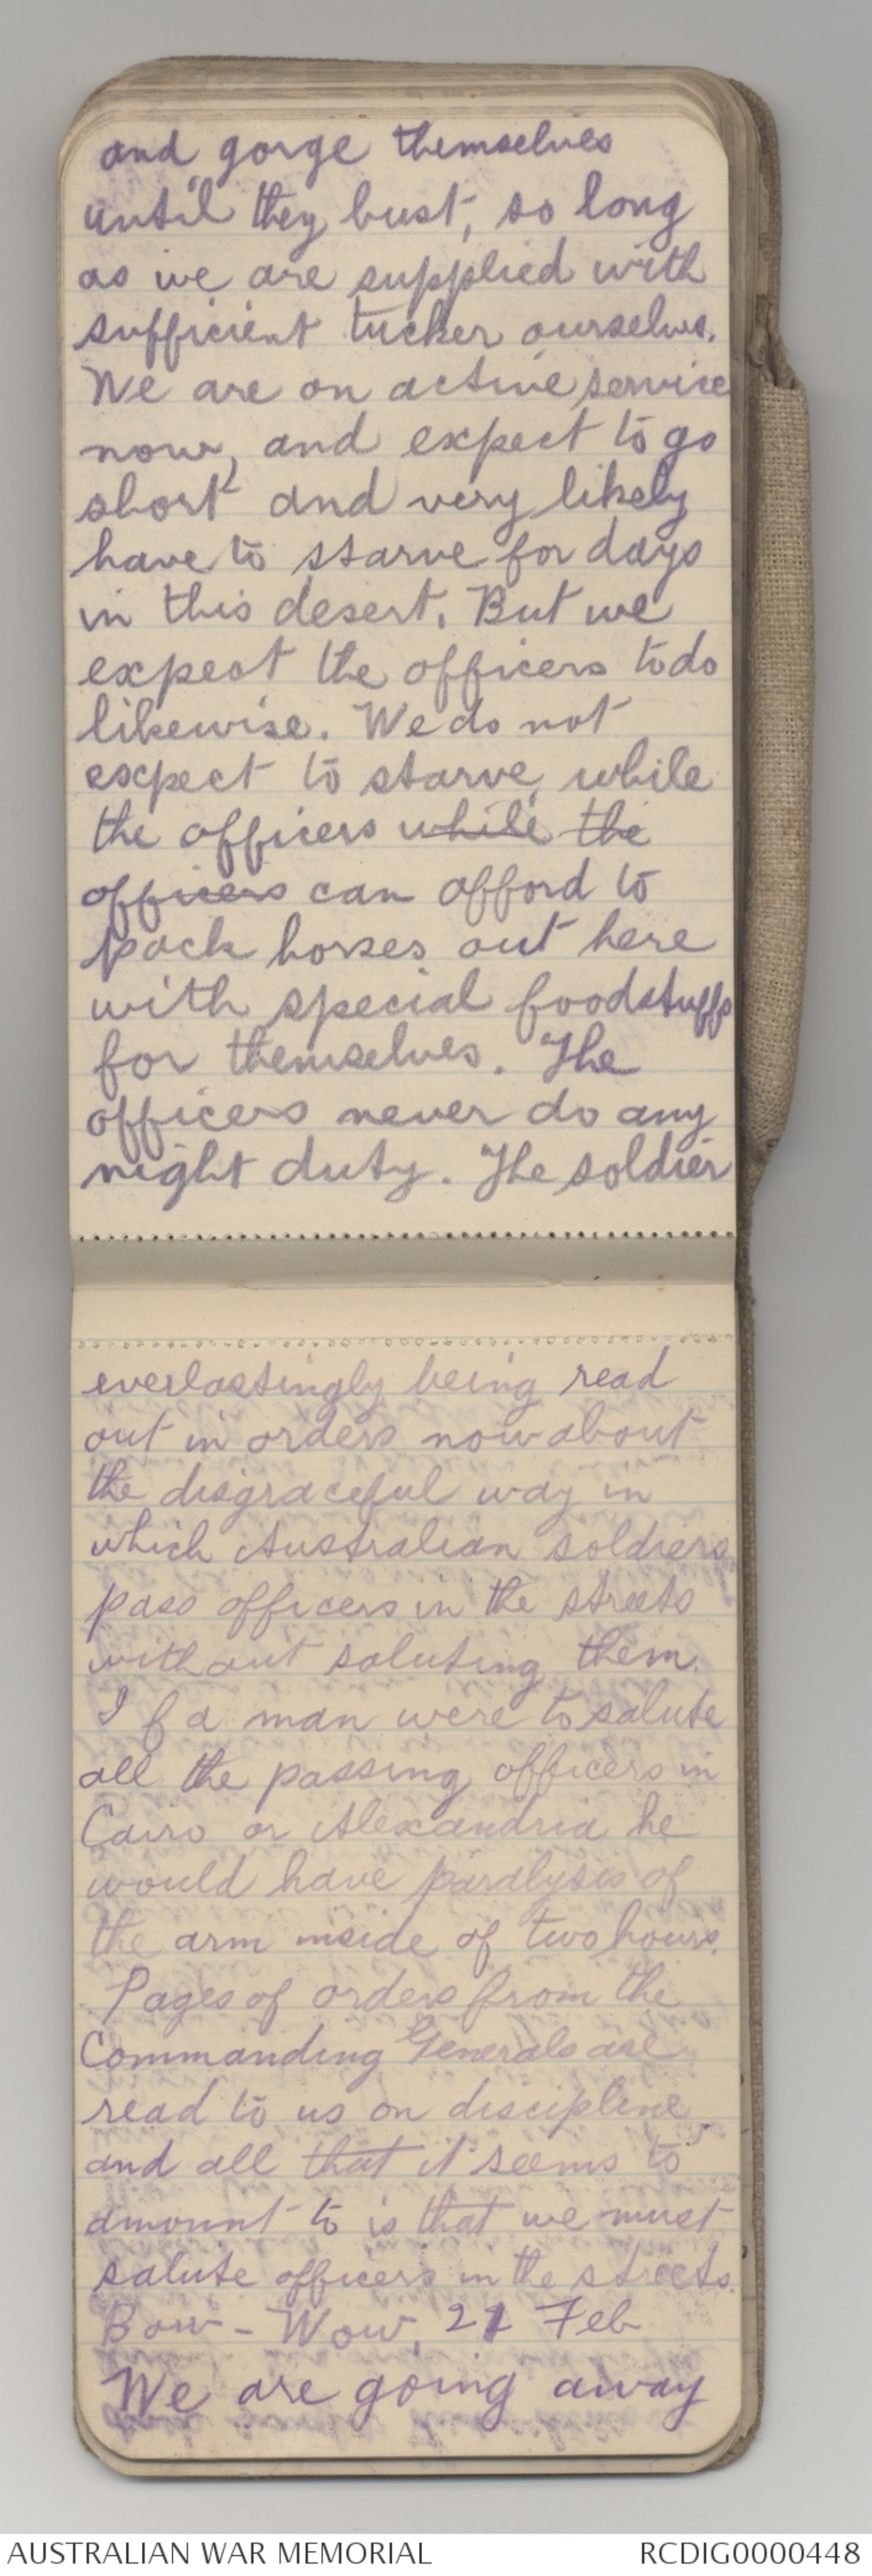 and gorge themselves
until they bust, so long
as we are supplied with
sufficient tucker ourselves.
We are on active service
now, and expect to go
short and very likely
have to starve for days
in this desert. But we
expect the officers to do
likewise. We do not
expect to starve, while
the officers while the
officers can afford to
pack horses out here
with special foodstuffs
for themselves. The
officers never do any
night duty. The soldier
everlastingly being read
out in orders now about
the disgraceful way in
which Australian soldiers
pass officers in the streets
without saluting them.
If a man were to salute
all the passing officers in
Cairo or Alexandria he
would have paralysis of
the arm inside of two hours.
Pages of orders from the
Commanding Generals are
read to us on discipline
and all that it seems to
amount to is that we must
salute officers in the streets.
Bow-Wow, 21 Feb
We are going away
AUSTRALIAN WAR MEMORIAL
RCDIG0000448